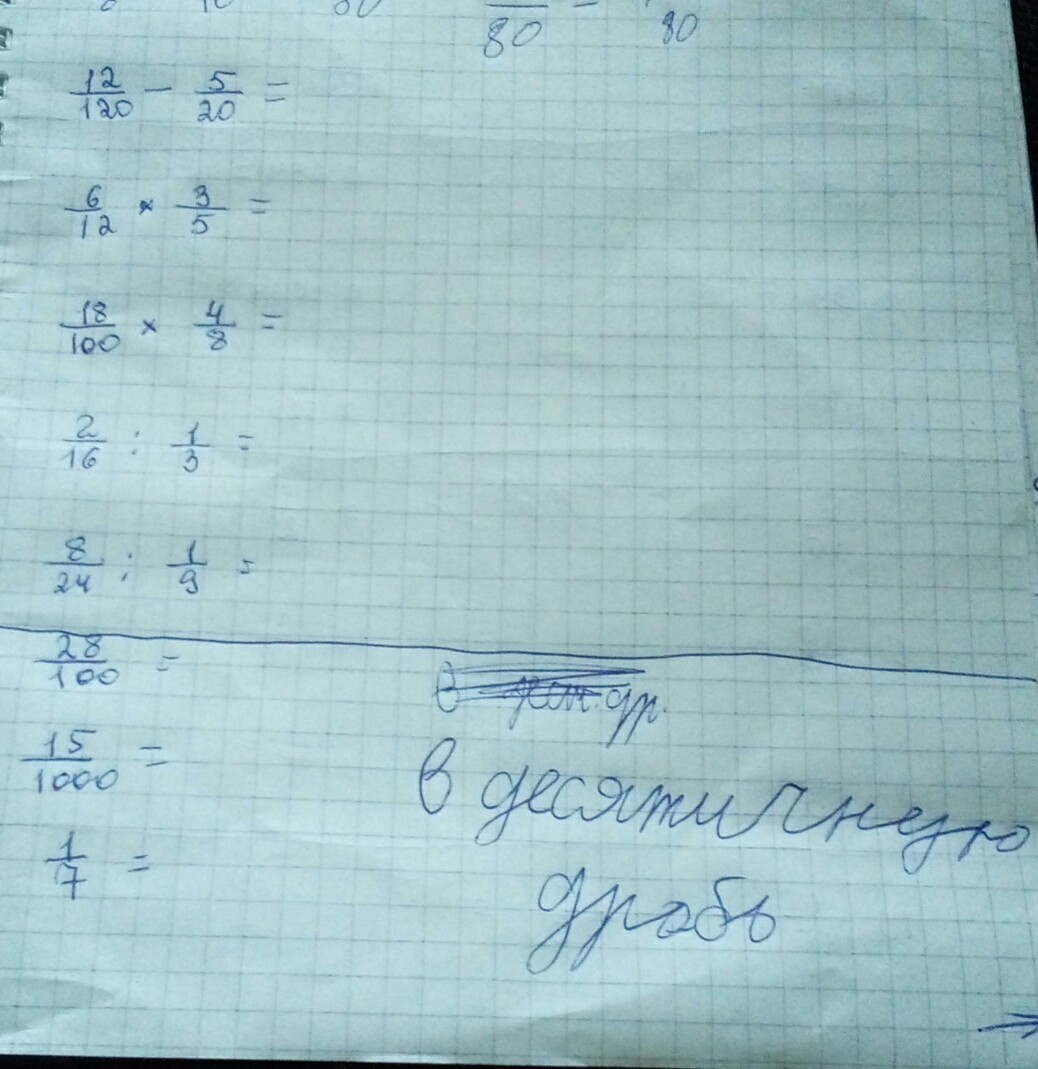 80 = 80
12/120 - 5/20 =
6/12 × 3/5 =
18/100 × 4/8 =
2/16 : 1/3 =
8/24 : 1/9 =
28/100 =
в др.
15/1000 =
в десятичную
1/7 =
дробь